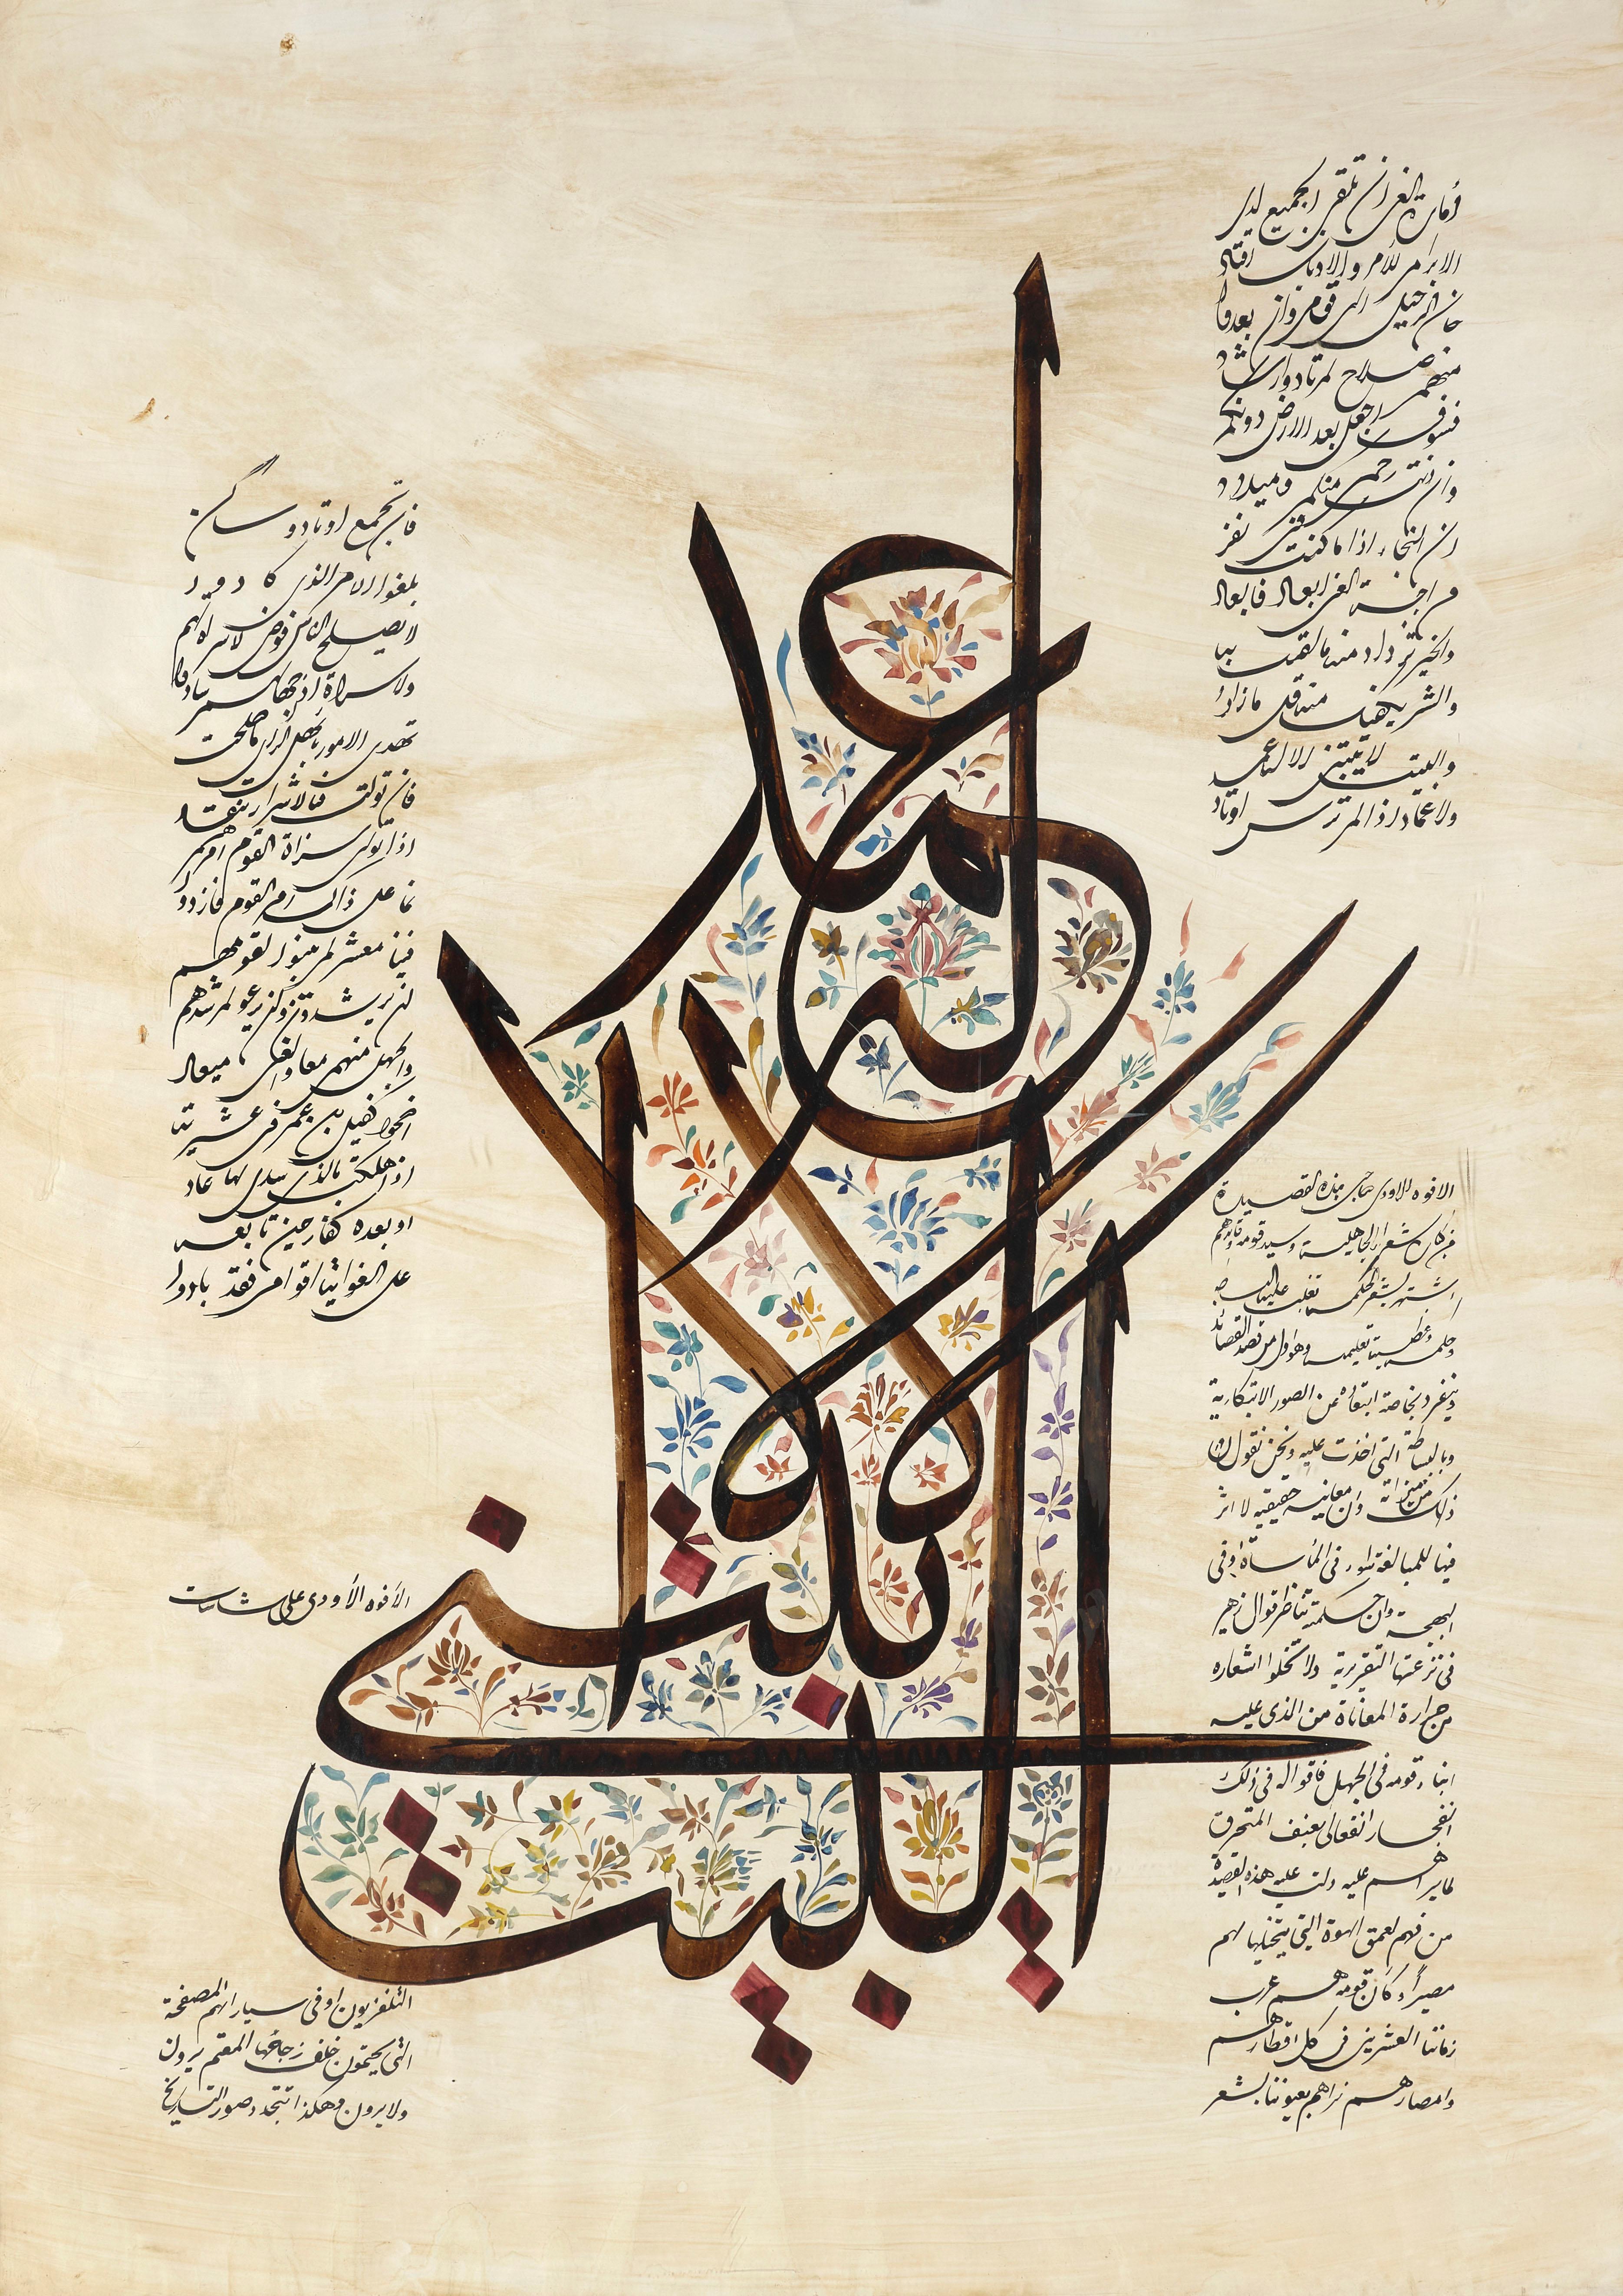 البيت لا يبتنى
الا له عمد
أمارة الغي ان تلقى الجميع لدى
الابرام للأمر والاذناب اقتاد
حان الرحيل الى قوم وان بعدوا
منهم صلاح لمرتاد وارشاد
فسوف اجعل بعد الارض دونكم
وان دنت رحم منكم وميلاد
ان النجاء اذا ما كنت في نفر
من اجة الغي ابعاد فابعاد
والخير تزداد منه ما لقيت به
والشر يكفيك منه قل ما زاد
والبيت لا يبتنى الا له عمد
ولا عماد اذا لم ترس اوتاد
فان تجمع اوتاد وساكن
بلغوا الامر الذي كادوا
لا يصلح الناس فوضى لا سراة لهم
ولا سراة اذا جهالهم سادوا
تهدى الامور باهل الراي ما صلحت
فان تولت فبالاشرار تنقاد
اذا تولى سراة القوم امرهم
نما على ذاك امر القوم فازدادوا
فينا معشر لم يبنوا لقومهم
لا يرشدون ولن يرعوا لمرشدهم
والجهل منهم معا والغي ميعاد
اضحوا كقيل بن عمرو في عشيرته
اذ اهلكت بالذي سدى لها عاد
او بعده كقدار حين تابعه
على الغواية اقوام فقد بادوا
الأفوه الأودي على شاشات
الافوه الاودي صاحب هذه القصيدة
من كان شعراء الجاهلية وسيد قومه وقائدهم
اشتهر بشعر الحكمة تغلب عليه
وهو اول من قصد القصائد
وينفرد بخاصة ابتعاده عن الصور الابتكارية
وبالبساطة التي اخذت عليه ونحن نقول ان
ذلك من ميزاته وان معانيه حقيقية لا اثر
فيها للمبالغة سواء في المأساة او في
البهجة وان حكمته تناظر اقوال زهير
في نزعتها التقريرية ولا تخلوا اشعاره
من حرارة المعاناة من الذي عليه
ابناء قومه في الجهل فاقواله في ذلك
انفجار انفعالي بعنف المتحرق
لما يراهم عليه ودلت عليه هذه القصيدة
من فهم لعمق الهوة التي يتخيلها لهم
مصيراً وكأن قومه هم عرب
زماننا العشرين في كل اقطارهم
وامصارهم نراهم بعيوننا بشعر
التلفزيون او في سياراتهم المصفحة
التي يحتمون خلف زجاجها المعتم يرون
ولا يرون وهكذا تتجدد صور التاريخ